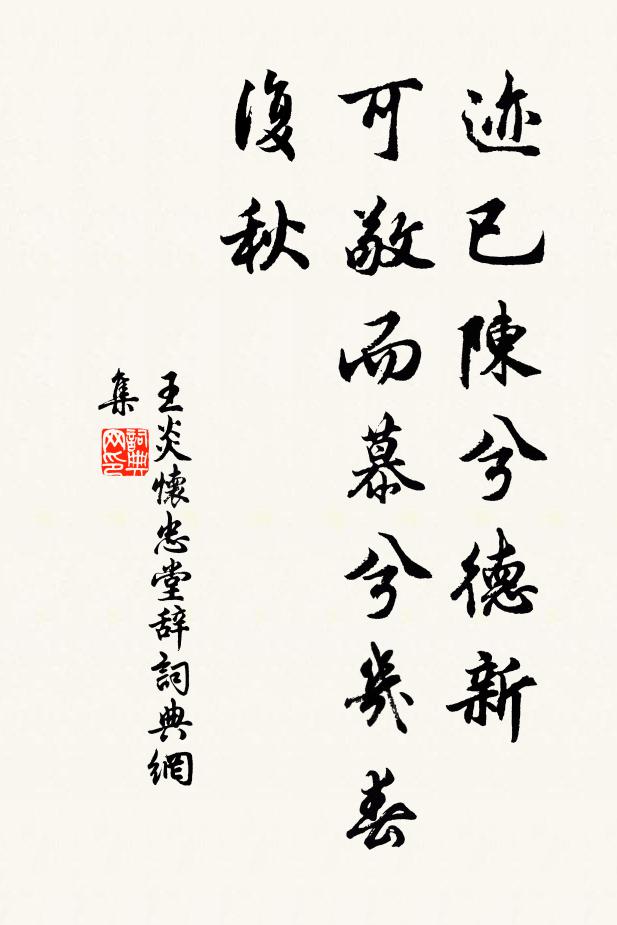 迹已陳兮德新
可敬而慕兮幾春
復秋
王炎懷忠堂辭詞典網
集
詞典
网印